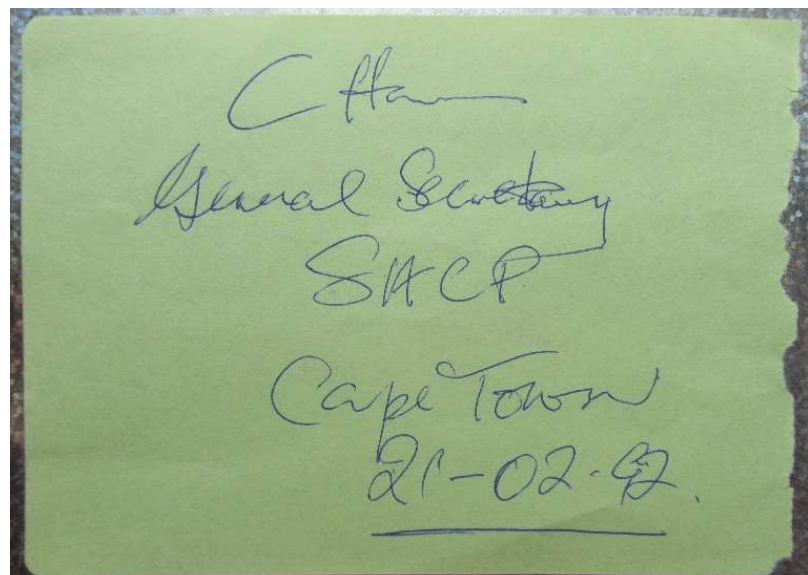 C Ha
General Secretary
SACP
Cape Town
21-02-92.